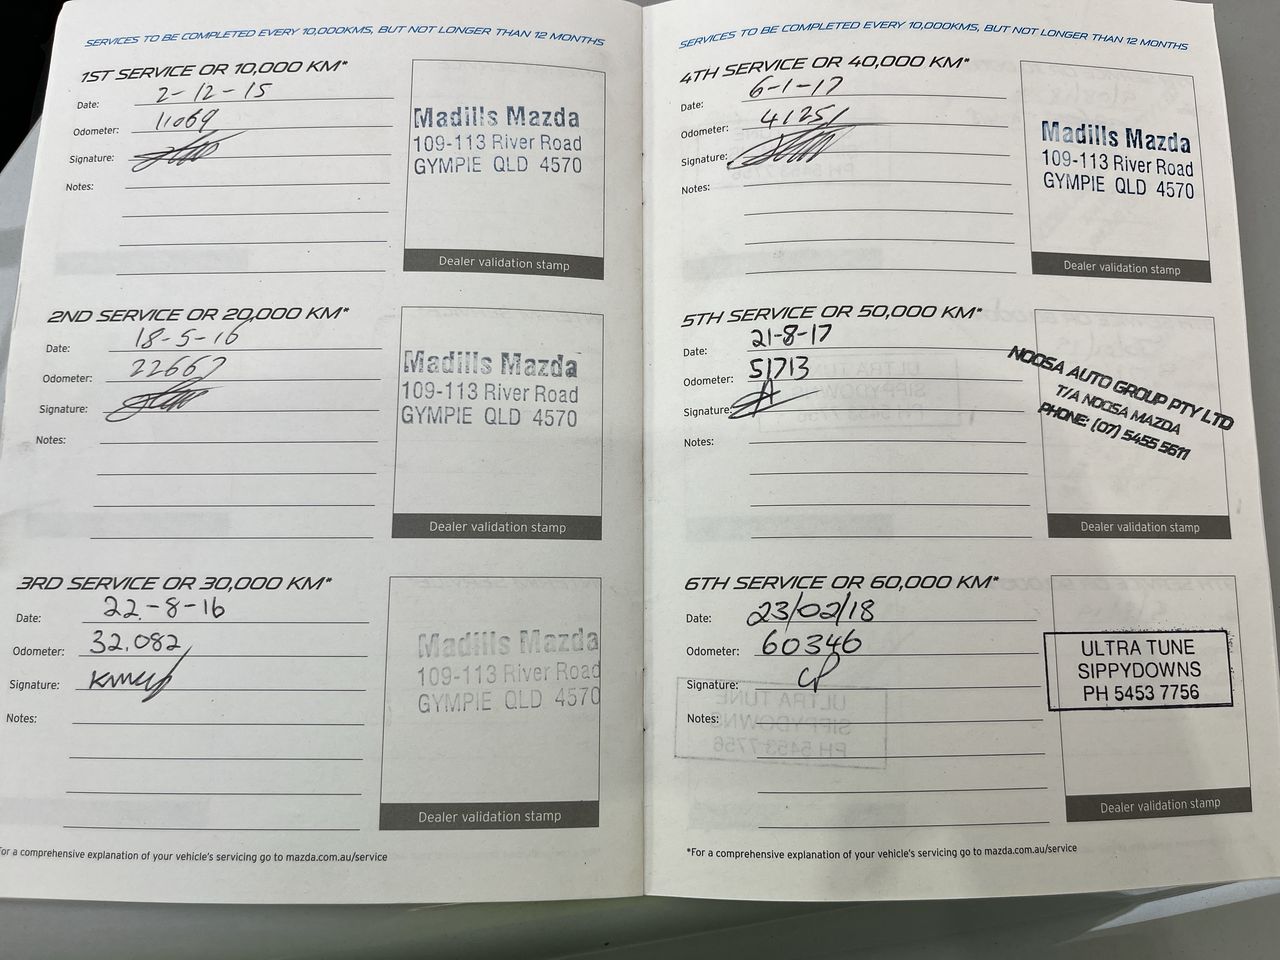 SERVICES TO BE COMPLETED EVERY 10,000KMS, BUT NOT LONGER THAN 12 MONTHS
1ST SERVICE OR 10,000 KM*
Date: 2-12-15
Odometer: 11069
Signature:
Notes:
Madills Mazda
109-113 River Road
GYMPIE QLD 4570
Dealer validation stamp
2ND SERVICE OR 20,000 KM*
Date: 18-5-16
Odometer: 22667
Signature:
Notes:
Madills Mazda
109-113 River Road
GYMPIE QLD 4570
Dealer validation stamp
3RD SERVICE OR 30,000 KM*
Date: 22-8-16
Odometer: 32,082
Signature:
Notes:
Madills Mazda
109-113 River Road
GYMPIE QLD 4570
Dealer validation stamp
For a comprehensive explanation of your vehicle's servicing go to mazda.com.au/service
SERVICES TO BE COMPLETED EVERY 10,000KMS, BUT NOT LONGER THAN 12 MONTHS
4TH SERVICE OR 40,000 KM*
Date: 6-1-17
Odometer: 41251
Signature:
Notes:
Madills Mazda
109-113 River Road
GYMPIE QLD 4570
Dealer validation stamp
5TH SERVICE OR 50,000 KM*
Date: 21-8-17
Odometer: 51713
Signature:
Notes:
NOOSA AUTO GROUP PTY LTD
T/A NOOSA MAZDA
PHONE: (07) 5455 5611
Dealer validation stamp
6TH SERVICE OR 60,000 KM*
Date: 23/02/18
Odometer: 60346
Signature:
Notes:
ULTRA TUNE
SIPPYDOWNS
PH 5453 7756
Dealer validation stamp
*For a comprehensive explanation of your vehicle's servicing go to mazda.com.au/service